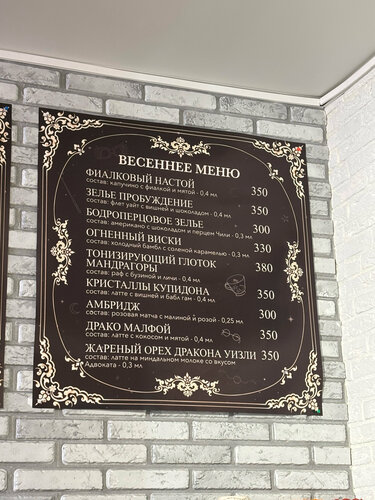 ВЕСЕННЕЕ МЕНЮ
ФИАЛКОВЫЙ НАСТОЙ 350
состав: капучино с фиалкой и мятой - 0,4 мл
ЗЕЛЬЕ ПРОБУЖДЕНИЕ 350
состав: флет уайт с вишней и шоколадом - 0,4 мл
БОДРОПЕРЦОВОЕ ЗЕЛЬЕ 300
состав: американо с шоколадом и перцем Чили - 0,3 мл
ОГНЕННЫЙ ВИСКИ 330
состав: холодный бамбл с соленой карамелью - 0,3 мл
ТОНИЗИРУЮЩИЙ ГЛОТОК 380
МАНДРАГОРЫ
состав: раф с бузиной и личи - 0,4 мл
КРИСТАЛЛЫ КУПИДОНА 350
состав: латте с вишней и бабл гам - 0,4 мл
АМБРИДЖ 300
состав: розовая матча с малиной и розой - 0,25 мл
ДРАКО МАЛФОЙ 350
состав: латте с кокосом и мятой - 0,4 мл
ЖАРЕНЫЙ ОРЕХ ДРАКОНА УИЗЛИ 350
состав: латте на миндальном молоке со вкусом
Адвоката - 0,3 мл